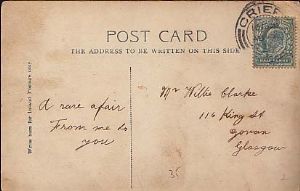 POST CARD
THE ADDRESS TO BE WRITTEN ON THIS SIDE
CRIEF
HALFPENNY
A rare afair
From me to
you
Mr Willie Clarke
116 King St
Govan
Glasgow
35
2